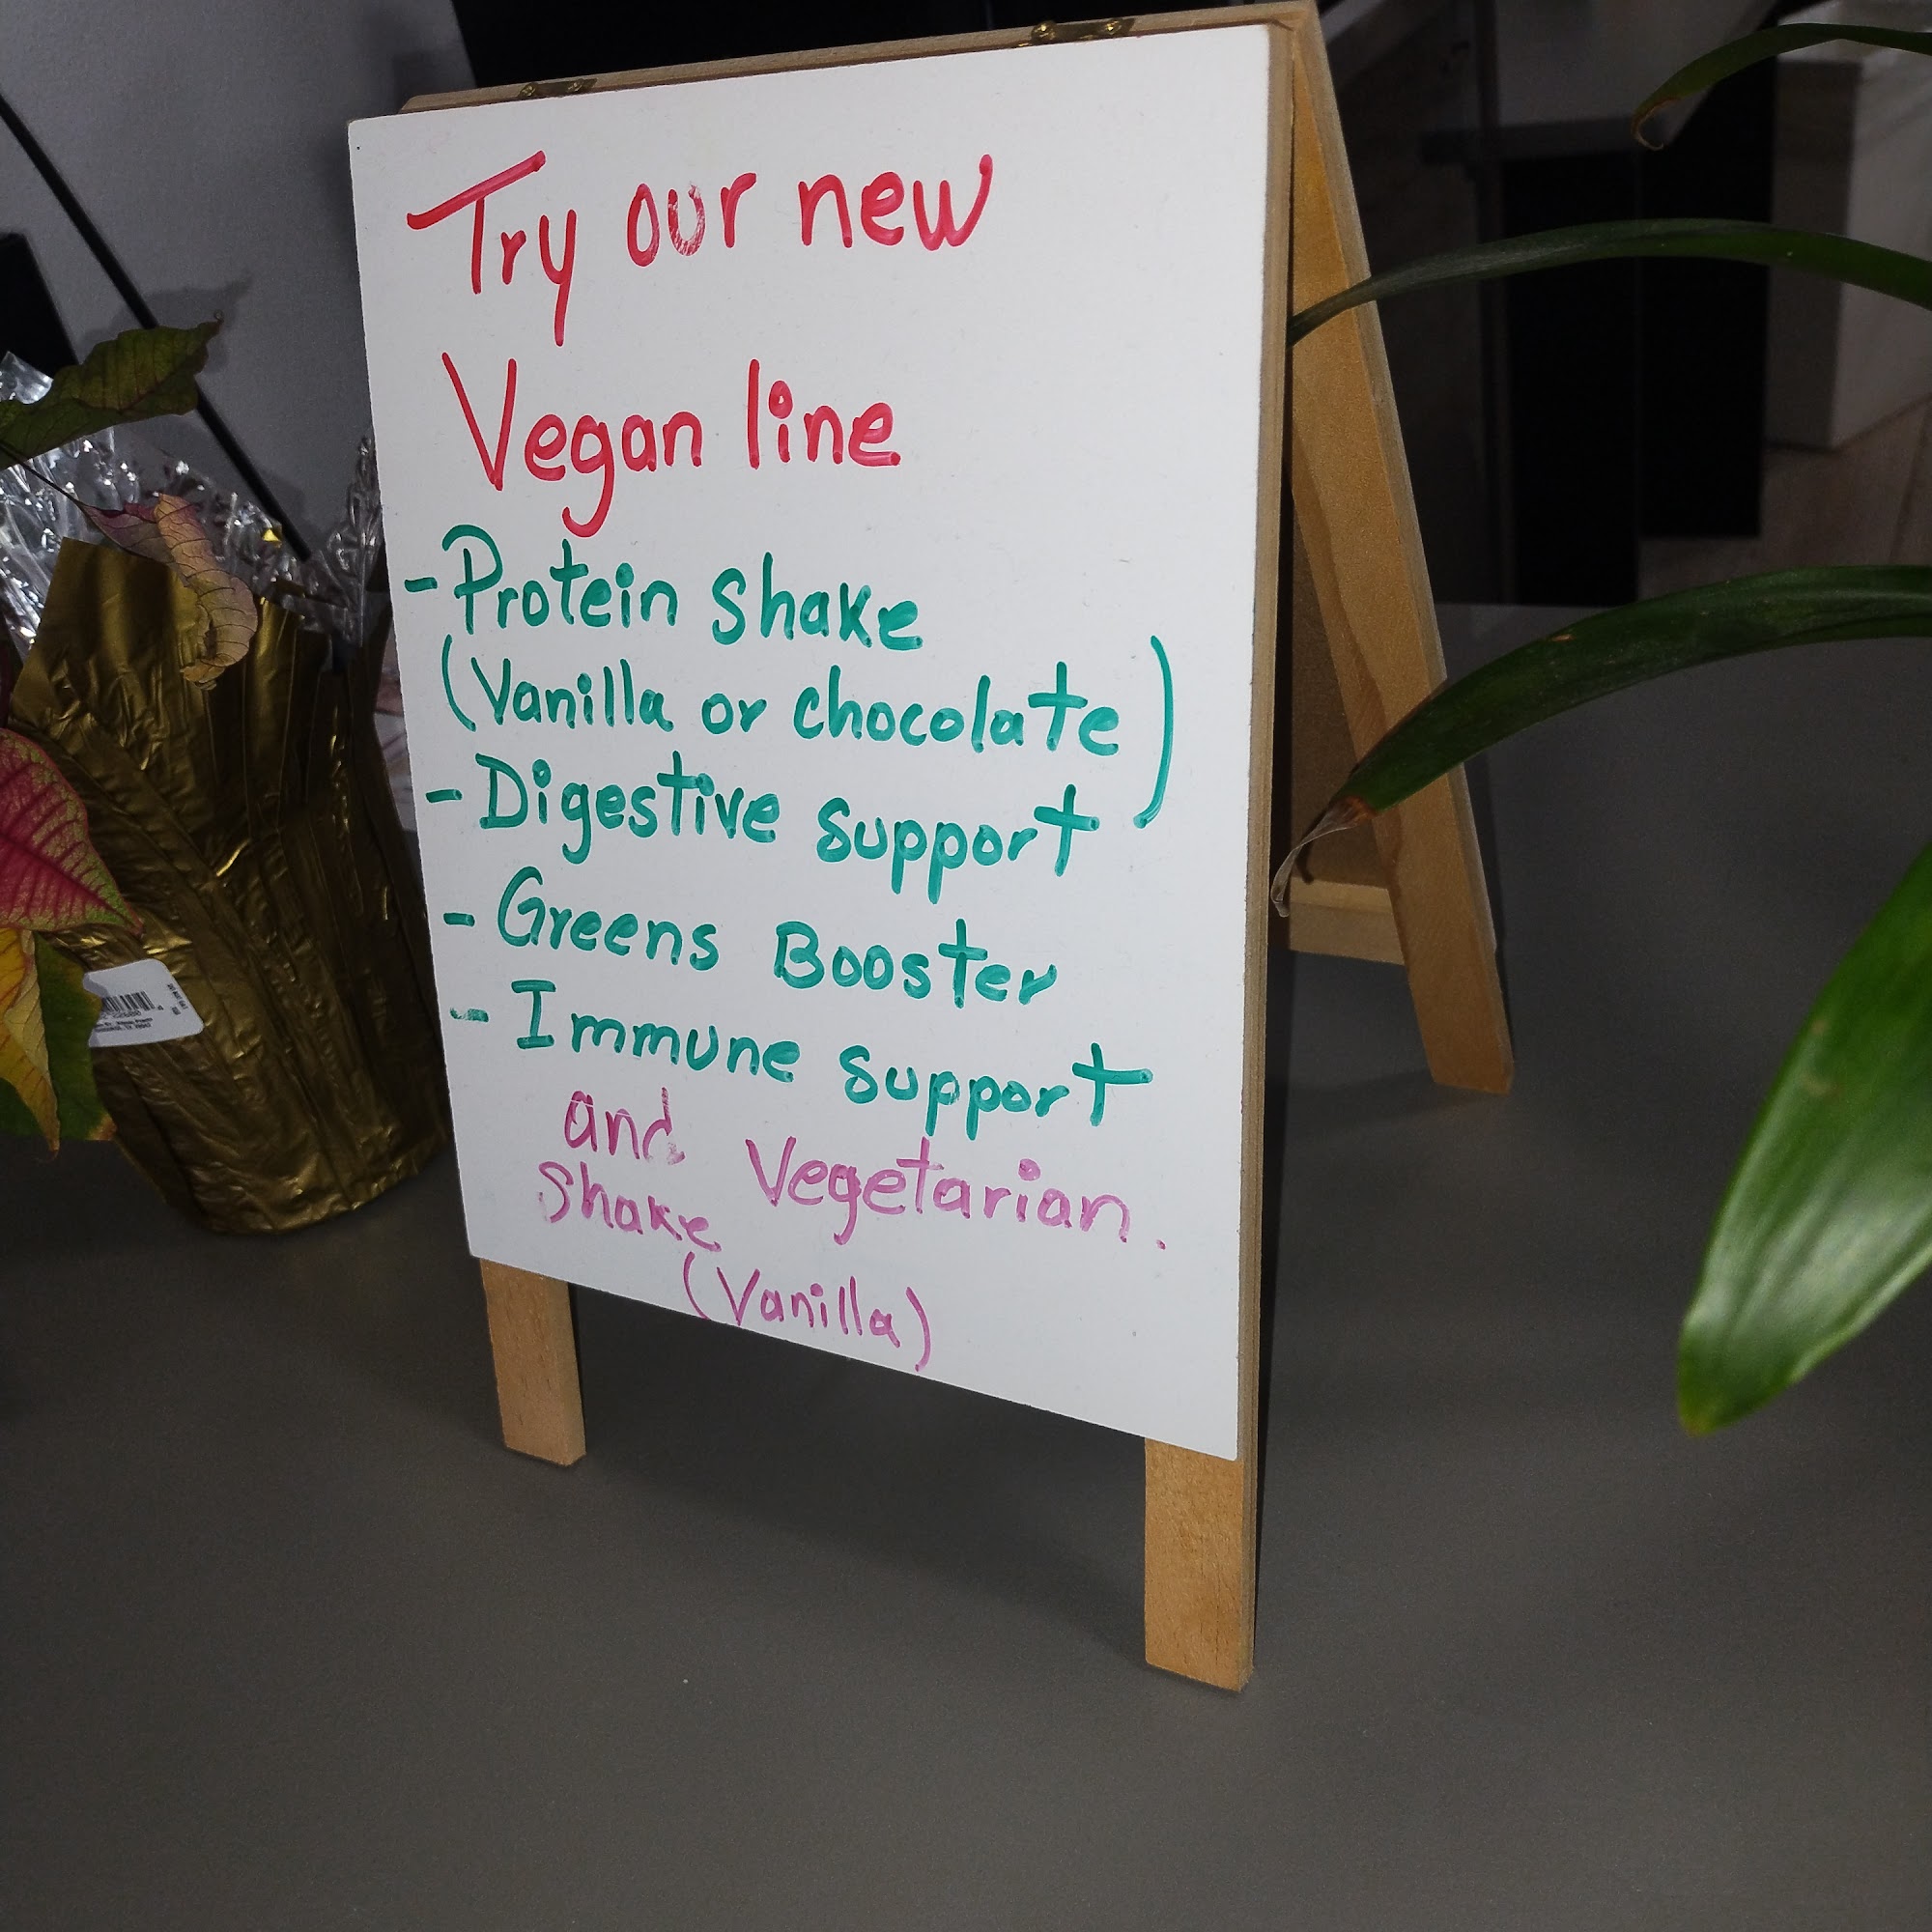 Try our new
Vegan line
- Protein shake
(Vanilla or chocolate)
- Digestive support
- Greens Booster
- Immune support
and Vegetarian.
Shake
(Vanilla)